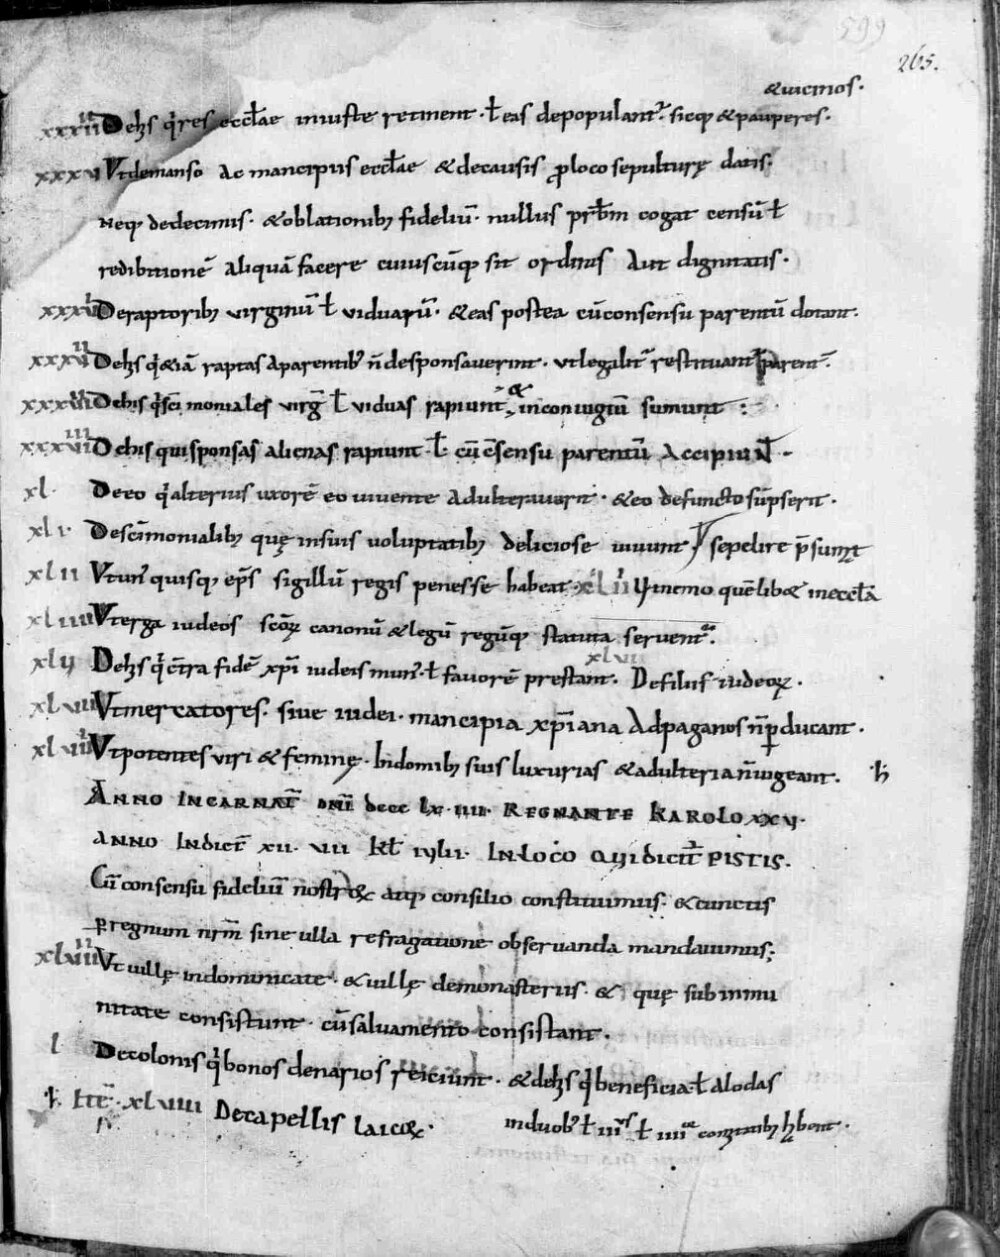 599
265.
&uicinos.
xxxiiii Dehis qi res eccłae iniuste retinent · ł eas depopulant̄. sicq; & pauperes.
xxxv Vt demanso ac mancipiis eccłae & decausis ꝓ loco sepulturę datis.
neq; dedecimis · & oblationib; fideliū · nullus prb̄m cogat censū ł
redibitionē aliquā facere cuiuscūq; sit ordinis aut dignitatis.
Deraptorib; virginū ł viduarū · & eas postea cūconsensu parentū dotant.
Dehis qi &iā raptas aparentib; n̄ desponsauerint · vt legalit̄ restituant̄ parent̄.
Dehis qi sc̄imoniales virḡ ł viduas rapiunt, & inconiugiū sumunt :
Dehis qui sponsas alienas rapiunt · ł cū c̄sensu parentū accipiunt ·
xl · Deeo qi alterius uxorē eo uiuente adulterauerit · & eo defuncto sūpserit ·
xli · Descīmonialib; quę insuis uoluptatib; deliciose uiuunt
sepelire p̄sumat
xlii Vt un̄ quisq; ep̄s sigillū regis penes se habeat · xliii Vt nemo quēlib& ineccła
xliiii Vt erga iudeos scōꝝ canonū & legū regūq; statuta seruent̄.
xlv Dehis qi c̄tra fidē xp̄i iudeis mun̄ · ł fauorē prestant. xlvii Defiliis iudeoꝝ.
Vt mercatores · siue iudei · mancipia xp̄iana adpaganos n̄ ꝑducant.
Vt potentes viri & feminę · indomib; suis luxurias & adulteria n̄ uigeant. ·ħ
Anno incarnat̄ dn̄i dccc lx · iiii · Regnante Karolo xxv ·
anno indict̄ xii · vii kł iulii · in loco qui dicit̄ Pistis.
Cū consensu fideliū nostroꝝ atq; consilio constituimus · & cunctis
ꝑ regnum nrm̄ sine ulla refragatione obseruanda mandauimus;
Vt uillę indominicate · & uillę demonasteriis · & quę sub inmu
nitate consistunt · cū saluamento consistant.
l Decolonis qi bonos denarios reiciunt · & dehis qi beneficia ł alodas
induob; ł iii ł iiii comitatib; habent.
ħ · Ite · xlviiii Decapellis laicoꝝ.